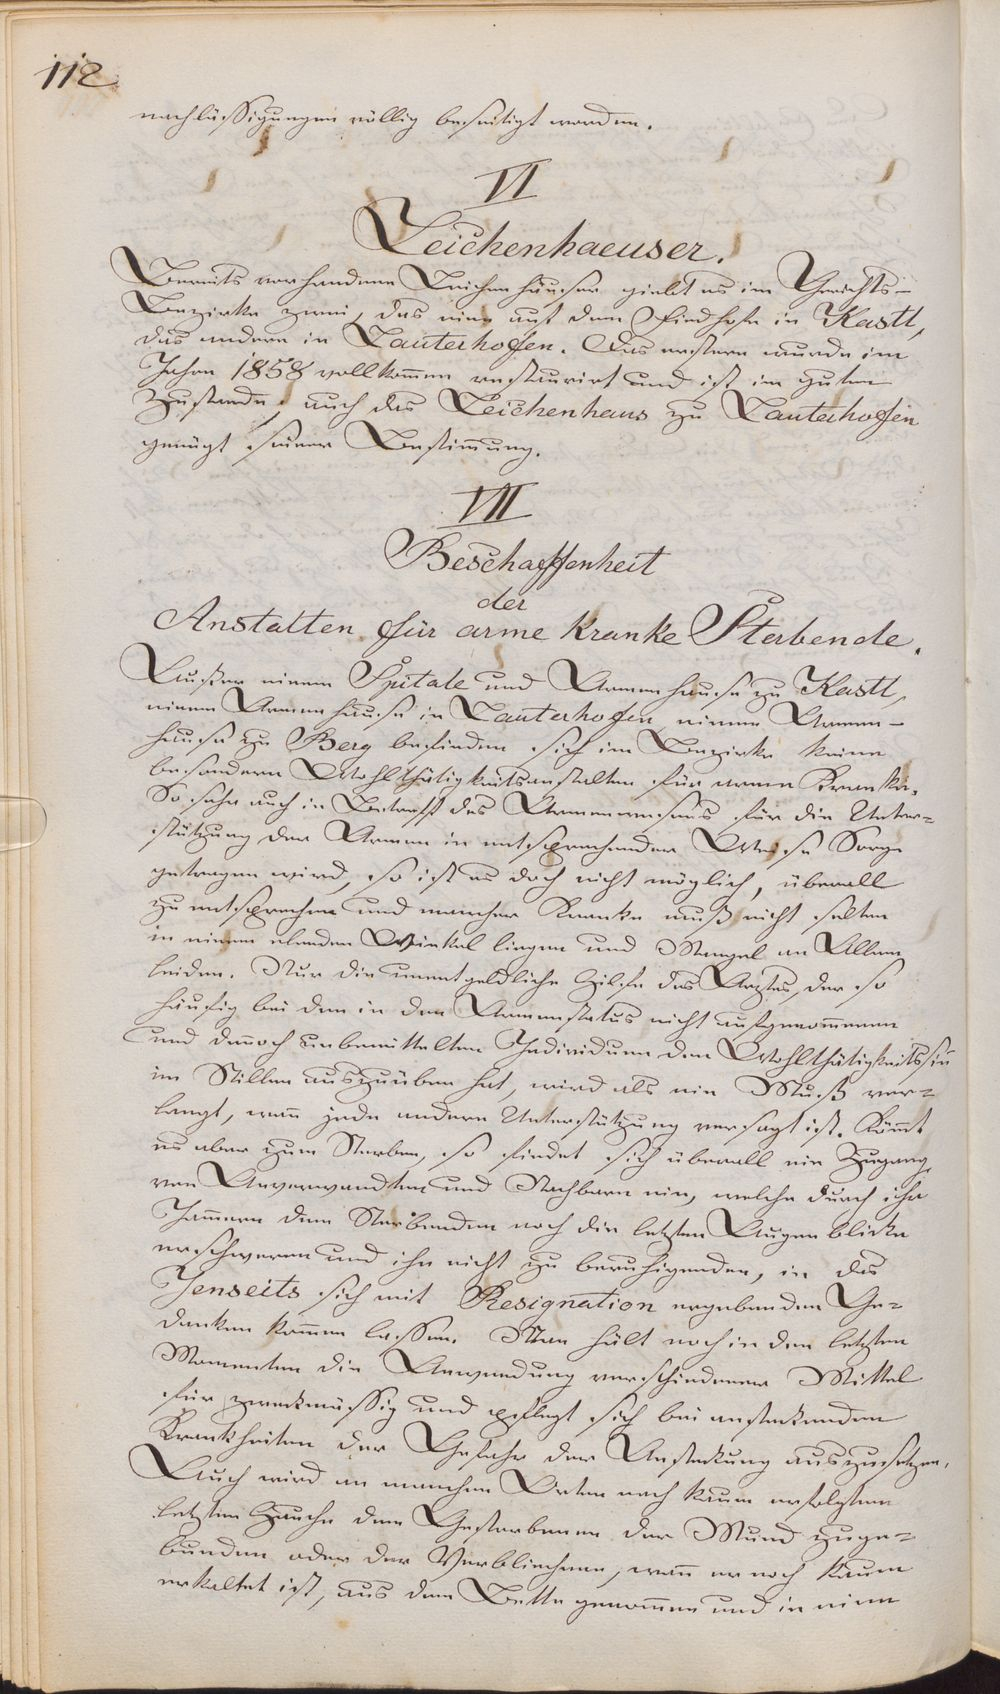 112
nachlässigungen völlig beseitigt worden.
VI
Leichenhaeuser.
Bereits vorhandene Leichenhäuser giebt es im Gerichts-
Bezirke zwei, das eine auf dem Friedhofe in Kastl,
das andere in Lauterhofen. Das erstere wurde im
Jahre 1858 vollkom̅en restaurirt und ist im guten
Zustande; auch das Leichenhaus zu Lauterhofen
genügt seiner Bestim̅ung.
VII
Beschaffenheit
der
Anstalten für arme Kranke Sterbende.
Außer einem Spitale und Armenhause zu Kastl,
einem Armenhause in Lauterhofen einem Armen-
hause zu Berg befinden sich im Bezirke keine
besondern Wohlthätigkeitsanstalten für arme Kranke.
So sehr auch in Betreff des Armenwesens für die Unter=
stützung der Armen in entsprechender Weise Sorge
getragen wird, so ist es doch nicht möglich, überall
zu entsprechen und mancher Kranke muß nicht selten
in einem elenden Winkel liegen und Mangel an Allem
leiden. Nur die unentgeldliche Hilfe des Arztes, der so
häufig bei den in den Armenstatus nicht aufgenom̅enen
und den̅och unbemittelten Individuen den Wohlthätigkeitssin̅
im Stillen auszuüben hat, wird als ein Muß ver=
langt, wen̅ jede andere Unterstützung versagt ist. Kom̅t
es aber zum Sterben, so findet sich überall ein Zugang
von Anverwandten und Nachbarn ein, welche durch ihr
Jam̅ern dem Sterbenden noch die letzten Augenblicke
erschweren und ihn nicht zu beruhigenden, in das
Jenseits sich mit Resignation ergebenden Ge=
danken kom̅en lassen. Man hält noch in den letzten
Momenten die Anwendung verschiedener Mittel
für zweckmässig und pflegt sich bei ansteckenden
Krankheiten der Gefahr der Ansteckung auszusetzen.
Auch wird an manchen Orten nach kaum erfolgtem
letzten Hauche dem Gestorbenen der Mund zuge=
bunden oder der Verblichene, wen̅ er noch kaum
erkaltet ist, aus dem Bette genom̅en und in eine